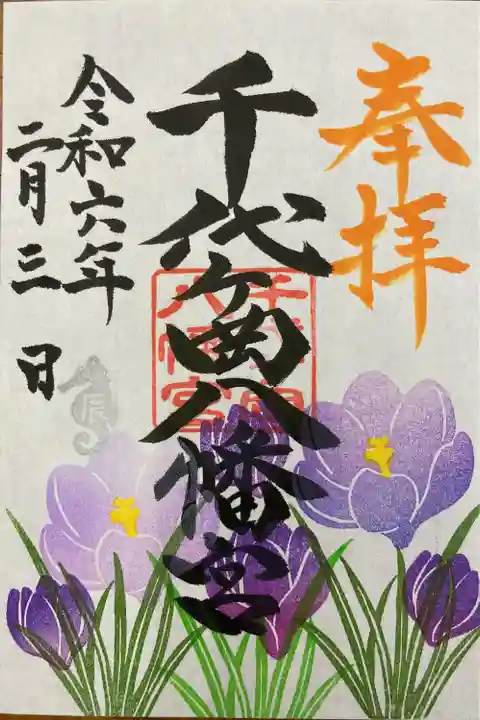 奉拝
千代ヶ岡八幡宮
令和六年
二月三日
千代ヶ岡
八幡宮
辰